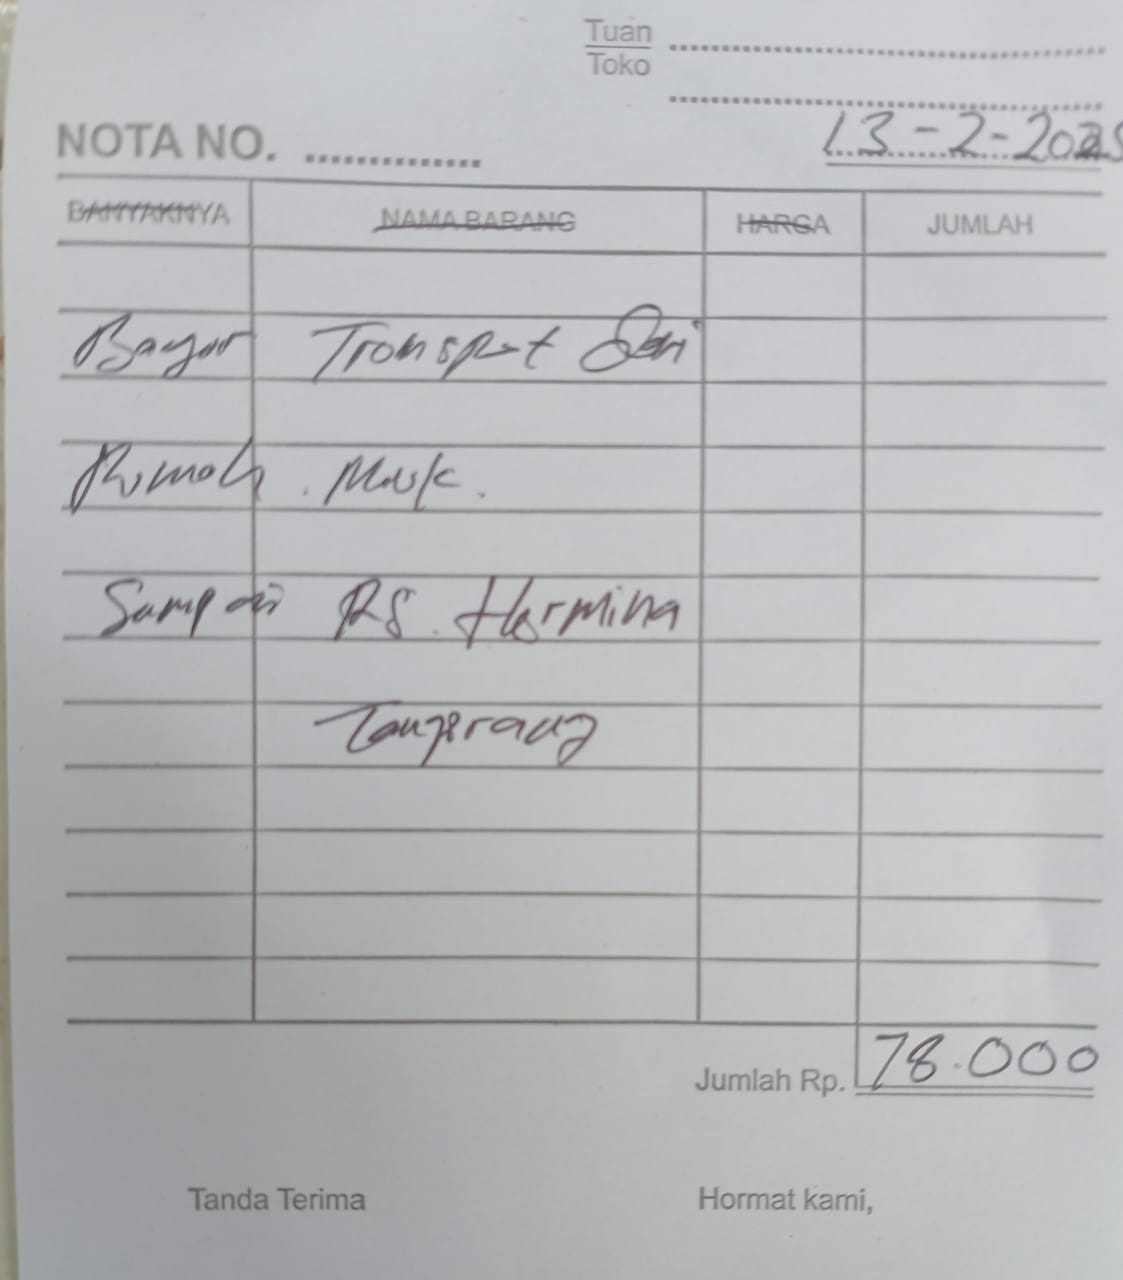 Tuan
Toko
NOTA NO.
13-2-2025
BANYAKNYA NAMA BARANG HARGA JUMLAH
Bayar Transport Dari
Rumah. Mauk.
Sampai RS. Hermina
Tangerang
Jumlah Rp. 78.000
Tanda Terima Hormat kami,